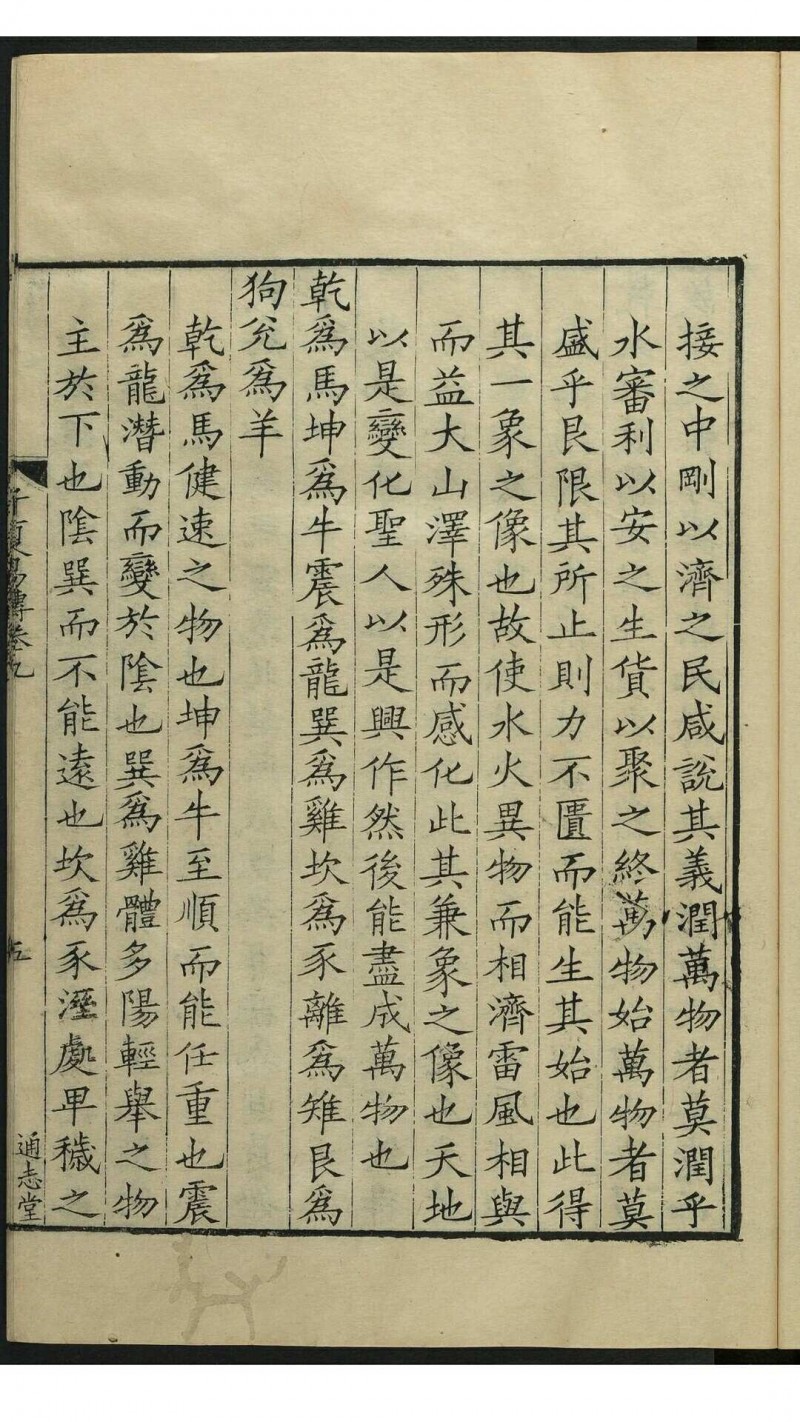 接之中剛以濟之民咸說其義潤萬物者莫潤乎
水審利以安之生貨以聚之終萬物始萬物者莫
盛乎艮限其所止則力不匱而能生其始也此得
其一象之像也故使水火異物而相濟雷風相與
而益大山澤殊形而感化此其兼象之像也天地
以是變化聖人以是興作然後能盡成萬物也
乾爲馬坤爲牛震爲龍巽爲雞坎爲豕離爲雉艮爲
狗兊爲羊
乾爲馬健速之物也坤爲牛至順而能任重也震
爲龍潛動而變於陰也巽爲雞體多陽輕舉之物
主於下也陰巽而不能遠也坎爲豕溼處卑穢之
易傳卷九
五
通志堂